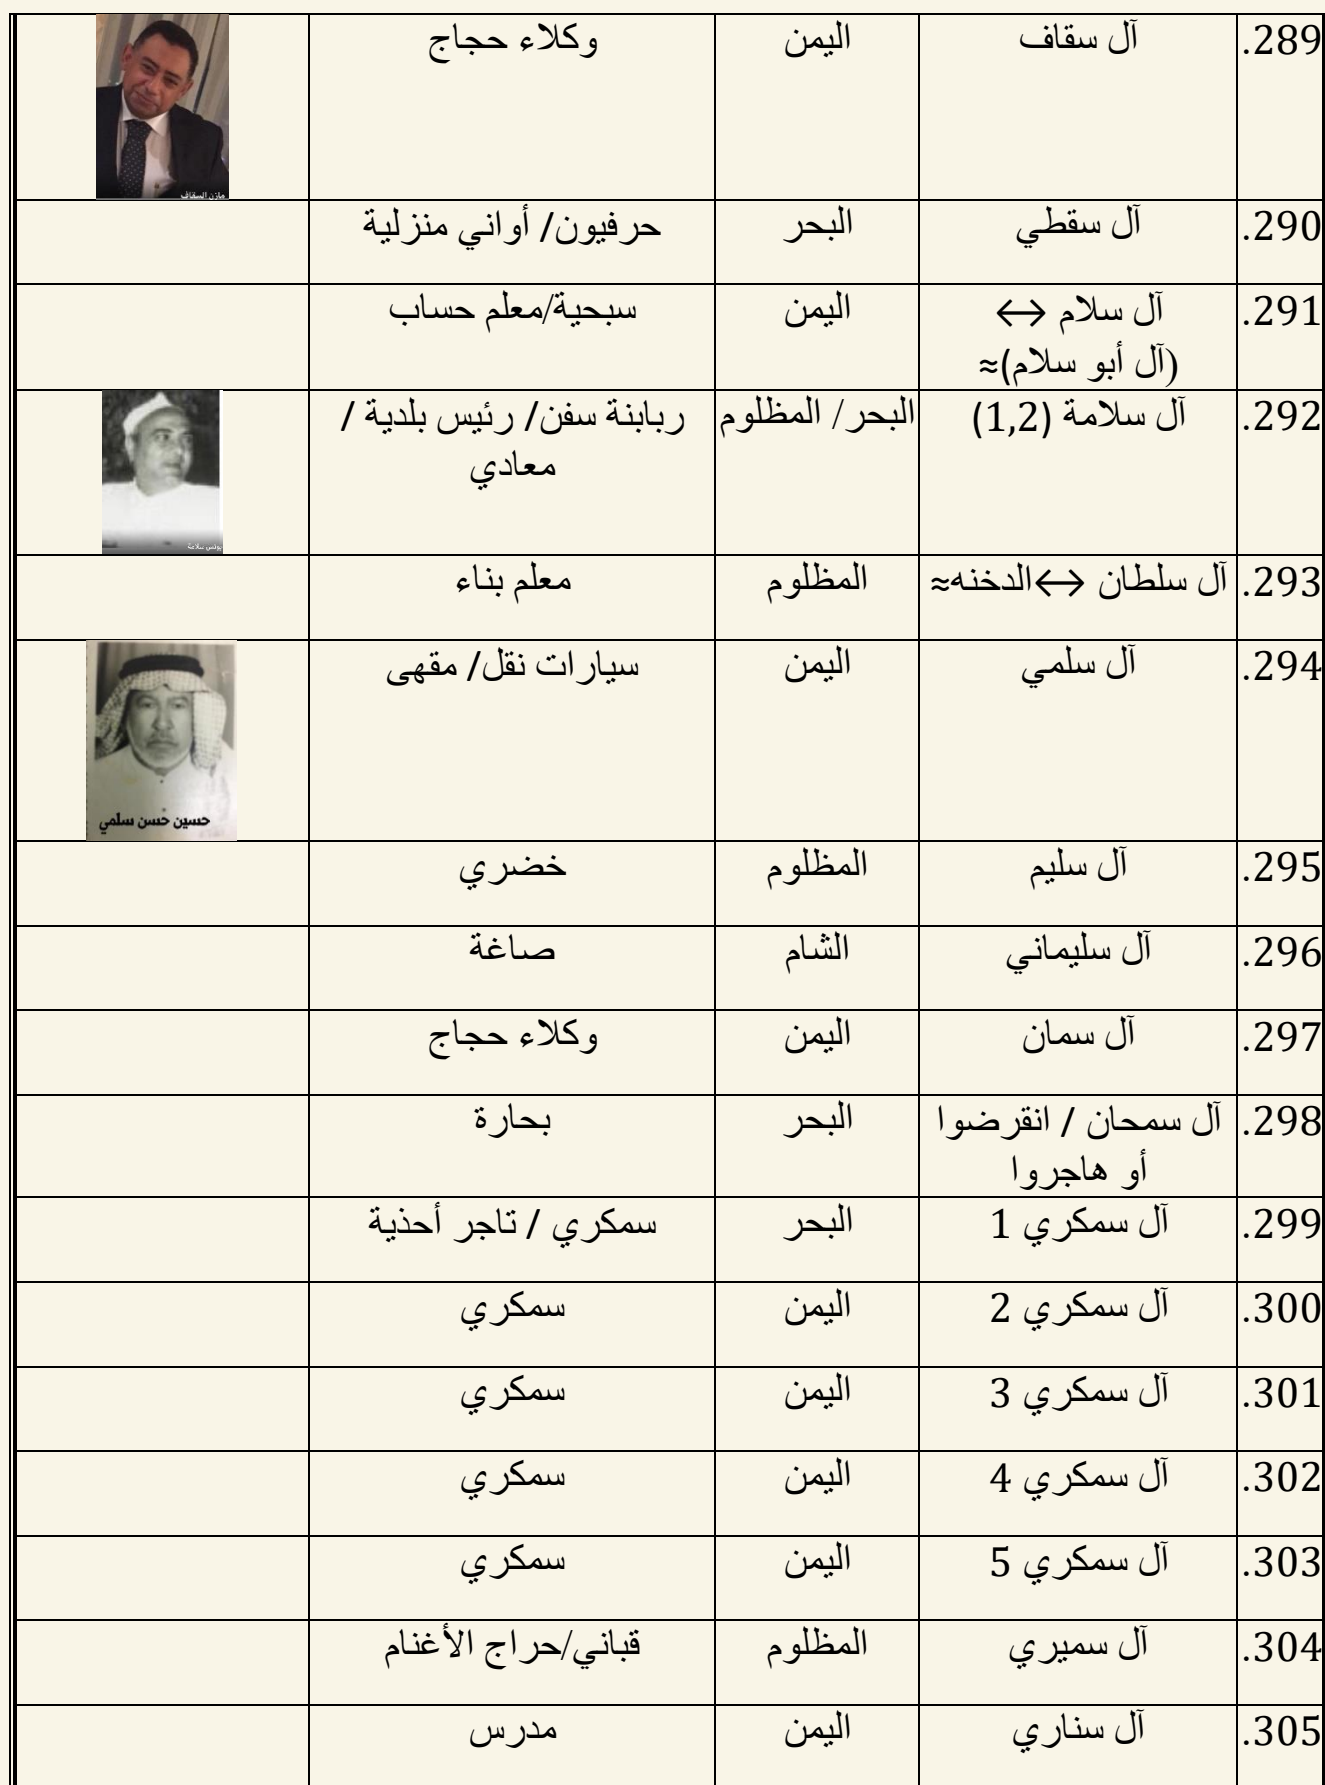 289. آل سقاف اليمن وكلاء حجاج
مازن السقاف
290. آل سقطي البحر حرفيون/ أواني منزلية
291. آل سلام ↔ اليمن سبحية/معلم حساب
(آل أبو سلام)≈
292. آل سلامة (1,2) البحر/ المظلوم ربابنة سفن/ رئيس بلدية /
معادي
يونس سلامة
293. آل سلطان ↔الدخنه≈ المظلوم معلم بناء
294. آل سلمي اليمن سيارات نقل/ مقهى
حسين حسن سلمي
295. آل سليم المظلوم خضري
296. آل سليماني الشام صاغة
297. آل سمان اليمن وكلاء حجاج
298. آل سمحان / انقرضوا البحر بحارة
أو هاجروا
299. آل سمكري 1 البحر سمكري / تاجر أحذية
300. آل سمكري 2 اليمن سمكري
301. آل سمكري 3 اليمن سمكري
302. آل سمكري 4 اليمن سمكري
303. آل سمكري 5 اليمن سمكري
304. آل سميري المظلوم قباني/حراج الأغنام
305. آل سناري اليمن مدرس